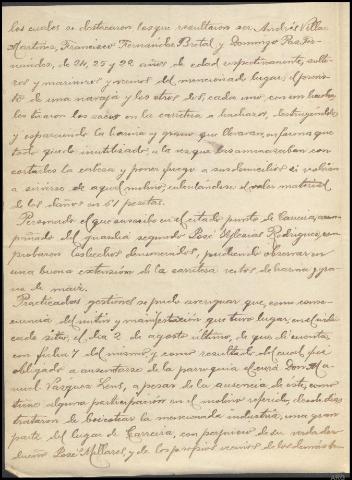 los cuales se destacaron los que resultaron ser Andrés Villa
Martínez, Francisco Fernández Bretal y Domingo Paz Fer-
nández, de 24, 25 y 22 años de edad respectivamente, solte-
ros y marineros y vecinos del mencionado lugar, el provis-
to de una navaja y los otros dos, cada uno, con un hacha,
los sacos en la carretera a hachazos, destruyéndolos
y esparciendo la harina y grano que llevaran, en forma que
todo quedó inutilizado, a la vez que les amenazaban con
cortarles la cabeza y poner fuego a sus domicilios si volvían
a servirse de aquel molino, calculándose el valor material
de los daños en 61 pesetas.
Personado el que suscribe en el citado punto de Carreira, acom-
pañado del guardia segundo José Iglesias Rodríguez, com-
probaron los hechos denunciados, pudiendo observar en
una buena extensión de la carretera restos de harina y gra-
no de maíz.
Practicadas gestiones se pudo averiguar que, como conse-
cuencia del mitin y manifestación que tuvo lugar en el indi-
cado sitio, el día 2 de agosto último, de que di cuenta
con fecha 7 del mismo, y como resultado del cual, fue
obligado a ausentarse de la parroquia el cura Don Ma-
nuel Vázquez Lens, a pesar de la ausencia de este, como
tiene alguna participación en el molino referido, desde dias
trataron de boicotear la mencionada industria, una gran
parte del lugar de Carreira, con perjuicio de su verdader
dueño José Millares, y de los propios vecinos de los demás